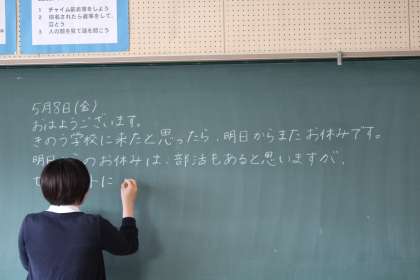 1 チャイム前着席をしよう
2 指名されたら返事をして、
立とう
3 人の顔を見て話を聞こう
5月8日(金)
おはようございます。
きのう学校に来たと思ったら、明日からまたお休みです。
明日 のお休みは、部活もあると思いますが、
に